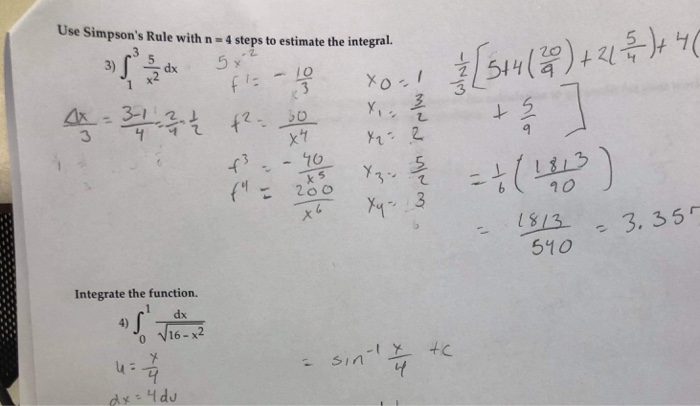 Use Simpson's Rule with n = 4 steps to estimate the integral.
3) ∫₁³ 5/x² dx
5x⁻²
f¹ = - 10/x³
f² = 30/x⁴
f³ = - 40/x⁵
f⁴ = 200/x⁶
Δx/3 = 3-1/4 = 2/4 = 1/2
x₀ = 1
x₁ = 3/2
x₂ = 2
x₃ = 5/2
x₄ = 3
1/2/3 [5+4(20/9) + 2(5/4) + 4(
+ 5/9 ]
= 1/6 (1813/90)
= 1813/540 = 3.35
Integrate the function.
4) ∫₀¹ dx/√16 - x²
u = x/4
dx = 4du
= sin⁻¹ x/4 +c